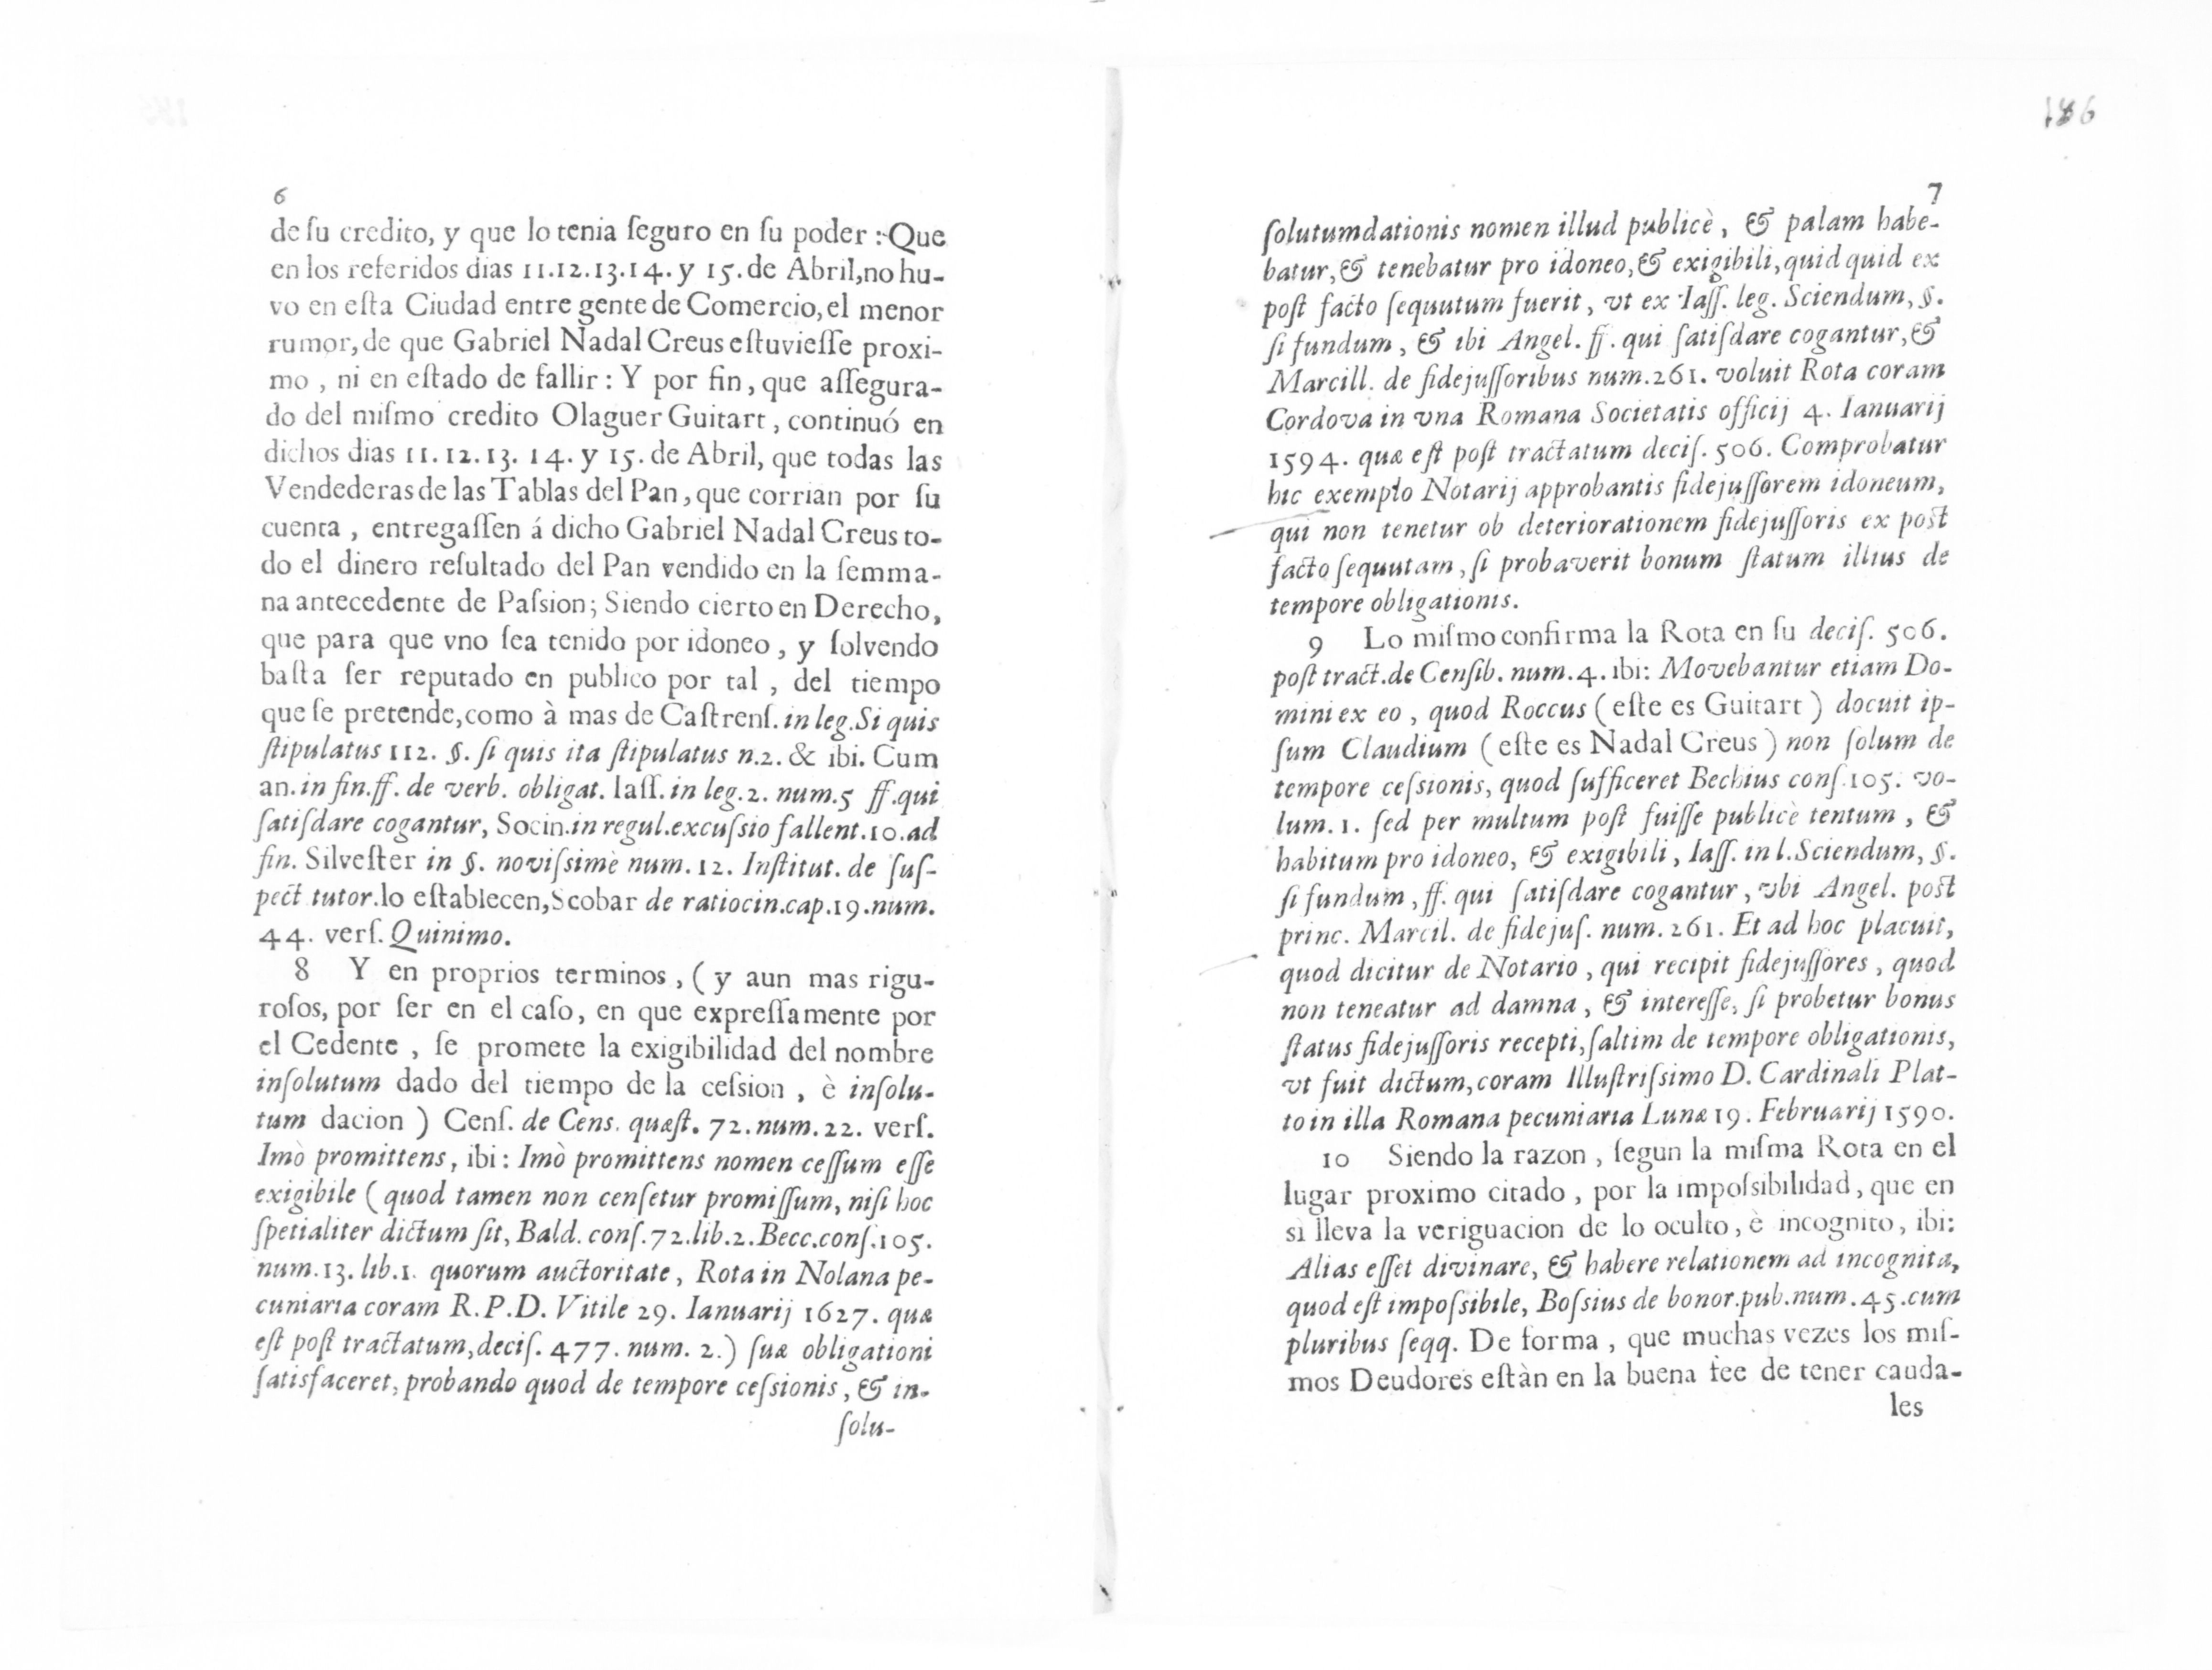 6
de ſu credito, y que lo tenia ſeguro en ſu poder : Que
en los referidos dias 11.12.13.14. y 15. de Abril, no hu-
vo en eſta Ciudad entre gente de Comercio, el menor
rumor, de que Gabriel Nadal Creus eſtuvieſſe proxi-
mo , ni en eſtado de fallir : Y por fin, que aſſegura-
do del miſmo credito Olaguer Guitart , continuó en
dichos dias 11. 12. 13. 14. y 15. de Abril, que todas las
Vendederas de las Tablas del Pan, que corrian por ſu
cuenta , entregaſſen á dicho Gabriel Nadal Creus to-
do el dinero reſultado del Pan vendido en la ſemma-
na antecedente de Paſsion; Siendo cierto en Derecho,
que para que vno ſea tenido por idoneo , y ſolvendo
baſta ſer reputado en publico por tal , del tiempo
que ſe pretende, como à mas de Caſtrenſ. in leg. Si quis
ſtipulatus 112. §. ſi quis ita ſtipulatus n.2. & ibi. Cum
an. in fin. ff. de verb. obligat. Iaſſ. in leg. 2. num. 5 ff. qui
ſatiſdare cogantur, Socin. in regul. excuſsio fallent. 10. ad
fin. Silveſter in §. noviſsimè num. 12. Inſtitut. de ſuſ-
pect tutor. lo eſtablecen, Scobar de ratiocin. cap. 19. num.
44. verſ. Quinimo.
8 Y en proprios terminos , ( y aun mas rigu-
roſos, por ſer en el caſo, en que expreſſamente por
el Cedente , ſe promete la exigibilidad del nombre
inſolutum dado del tiempo de la ceſsion , è inſolu-
tum dacion ) Cenſ. de Cens. quæſt. 72. num. 22. verſ.
Imò promittens, ibi : Imò promittens nomen ceſſum eſſe
exigibile ( quod tamen non cenſetur promiſſum, niſi hoc
ſpetialiter dictum ſit, Bald. conſ. 72. lib. 2. Becc. conſ. 105.
num. 13. lib. 1. quorum auctoritate , Rota in Nolana pe-
cuniaria coram R. P. D. Vitile 29. Ianuarij 1627. quæ
eſt poſt tractatum, deciſ. 477. num. 2.) ſuæ obligationi
ſatisfaceret, probando quod de tempore ceſsionis , & in-
ſolu-
186
7
ſolutumdationis nomen illud publicè , & palam habe-
batur, & tenebatur pro idoneo, & exigibili, quid quid ex
poſt facto ſequutum fuerit , vt ex Iaſſ. leg. Sciendum, §.
ſi fundum , & ibi Angel. ff. qui ſatiſdare cogantur, &
Marcill. de fidejuſſoribus num. 261. voluit Rota coram
Cordova in vna Romana Societatis officij 4. Ianuarij
1594. quæ eſt poſt tractatum deciſ. 506. Comprobatur
hic exemplo Notarij approbantis fidejuſſorem idoneum,
qui non tenetur ob deteriorationem fidejuſſoris ex poſt
facto ſequutam, ſi probaverit bonum ſtatum illius de
tempore obligationis.
9 Lo miſmo confirma la Rota en ſu deciſ. 506.
poſt tract. de Cenſib. num. 4. ibi: Movebantur etiam Do-
mini ex eo , quod Roccus ( eſte es Guitart ) docuit ip-
ſum Claudium ( eſte es Nadal Creus ) non ſolum de
tempore ceſsionis, quod ſufficeret Bechius conſ. 105. vo-
lum. 1. ſed per multum poſt fuiſſe publicè tentum , &
habitum pro idoneo, & exigibili , Iaſſ. in l. Sciendum, §.
ſi fundum , ff. qui ſatiſdare cogantur , vbi Angel. poſt
princ. Marcil. de fidejuſ. num. 261. Et ad hoc placuit,
quod dicitur de Notario , qui recipit fidejuſſores , quod
non teneatur ad damna , & intereſſe, ſi probetur bonus
ſtatus fidejuſſoris recepti, ſaltim de tempore obligationis,
vt fuit dictum, coram Illuſtriſsimo D. Cardinali Plat-
to in illa Romana pecuniaria Lunæ 19. Februarij 1590.
10 Siendo la razon , ſegun la miſma Rota en el
lugar proximo citado , por la impoſsibilidad, que en
si lleva la veriguacion de lo oculto, è incognito , ibi:
Alias eſſet divinare, & habere relationem ad incognita,
quod eſt impoſsibile, Boſsius de bonor. pub. num. 45. cum
pluribus ſeqq. De forma , que muchas vezes los miſ-
mos Deudores eſtàn en la buena fee de tener cauda-
les